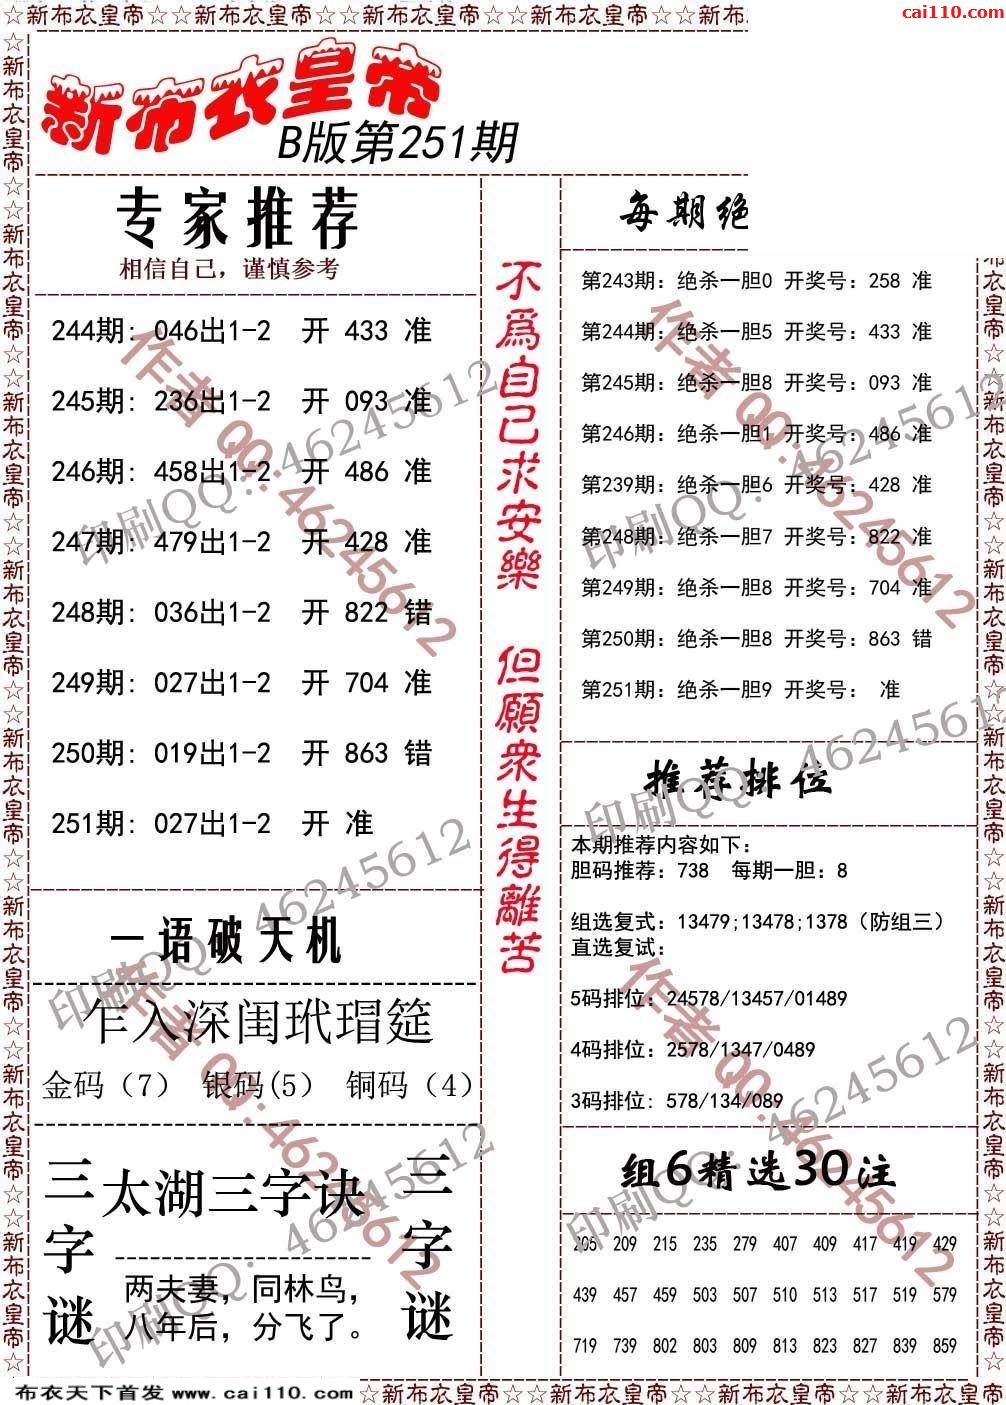 ☆新布衣皇帝☆☆新布衣皇帝☆☆新布衣皇帝☆☆新布衣皇帝☆☆新布
cai110.com
新布衣皇帝
B版第251期
专家推荐
相信自己，谨慎参考
244期: 046出1-2 开 433 准
245期: 236出1-2 开 093 准
246期: 458出1-2 开 486 准
247期: 479出1-2 开 428 准
248期: 036出1-2 开 822 错
249期: 027出1-2 开 704 准
250期: 019出1-2 开 863 错
251期: 027出1-2 开 准
一语破天机
乍入深闺玳瑁筵
金码（7） 银码(5） 铜码（4）
三字谜
太湖三字诀
两夫妻，同林鸟，
八年后，分飞了。
三字谜
不爲自己求安樂 但願衆生得離苦
每期绝
第243期: 绝杀一胆0 开奖号: 258 准
第244期: 绝杀一胆5 开奖号: 433 准
第245期: 绝杀一胆8 开奖号: 093 准
第246期: 绝杀一胆1 开奖号: 486 准
第239期: 绝杀一胆6 开奖号: 428 准
第248期: 绝杀一胆7 开奖号: 822 准
第249期: 绝杀一胆8 开奖号: 704 准
第250期: 绝杀一胆8 开奖号: 863 错
第251期: 绝杀一胆9 开奖号: 准
推荐排位
本期推荐内容如下:
胆码推荐: 738 每期一胆: 8
组选复式: 13479;13478;1378（防组三）
直选复试:
5码排位: 24578/13457/01489
4码排位: 2578/1347/0489
3码排位: 578/134/089
组6精选30注
205 209 215 235 279 407 409 417 419 429
439 457 459 503 507 510 513 517 519 579
719 739 802 803 809 813 823 827 839 859
作者 QQ:46245612
印刷QQ: 46245612
作者 QQ:46245612
印刷QQ: 46245612
印刷QQ: 46245612
印刷QQ: 46245612
作者 QQ:46245612
作者 QQ:46245612
印刷QQ: 46245612
印刷QQ: 46245612
☆新布衣皇帝☆☆新布衣皇帝☆☆新布衣皇帝☆☆新布衣皇帝☆☆新布衣皇帝☆☆新布衣皇帝☆☆新布衣皇帝☆☆新布衣皇帝☆
布衣皇帝☆☆新布衣皇帝☆☆新布衣皇帝☆☆新布衣皇帝☆☆新布衣皇帝☆☆新布衣皇帝☆☆新布衣皇帝☆
布衣天下首发 www.cai110.com
☆新布衣皇帝☆☆新布衣皇帝☆☆新布衣皇帝☆☆新布衣皇帝☆